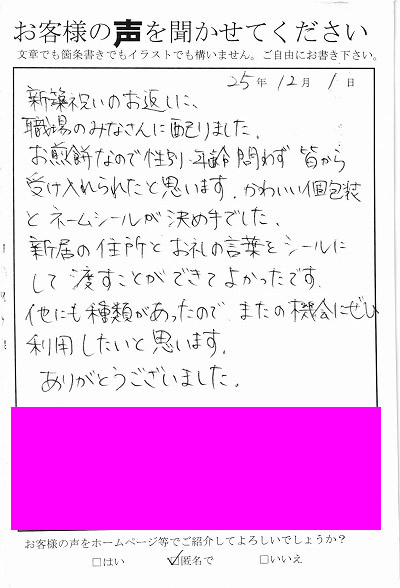 お客様の声を聞かせてください
文章でも箇条書きでもイラストでも構いません。ご自由にお書き下さい。
25年 12月 1日
新築祝いのお返しに、
職場のみなさんに配りました。
お煎餅なので性別・年齢問わず皆から
受け入れられたと思います。かわいい個包装
とネームシールが決め手でした。
新居の住所とお礼の言葉をシールに
して渡すことができてよかったです。
他にも種類があったので、またの機会にぜひ
利用したいと思います。
ありがとうございました。
お客様の声をホームページ等でご紹介してよろしいでしょうか?
□はい ☑匿名で □いいえ